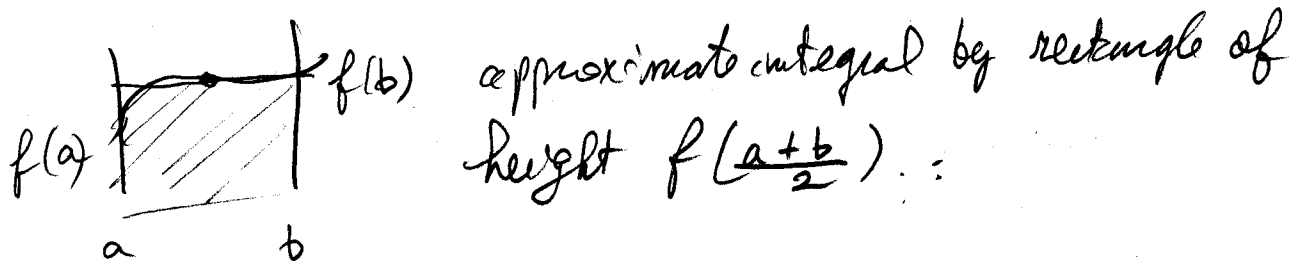 f(b) approximate integral by rectangle of
f(a) height f(\frac{a+b}{2})..
a b